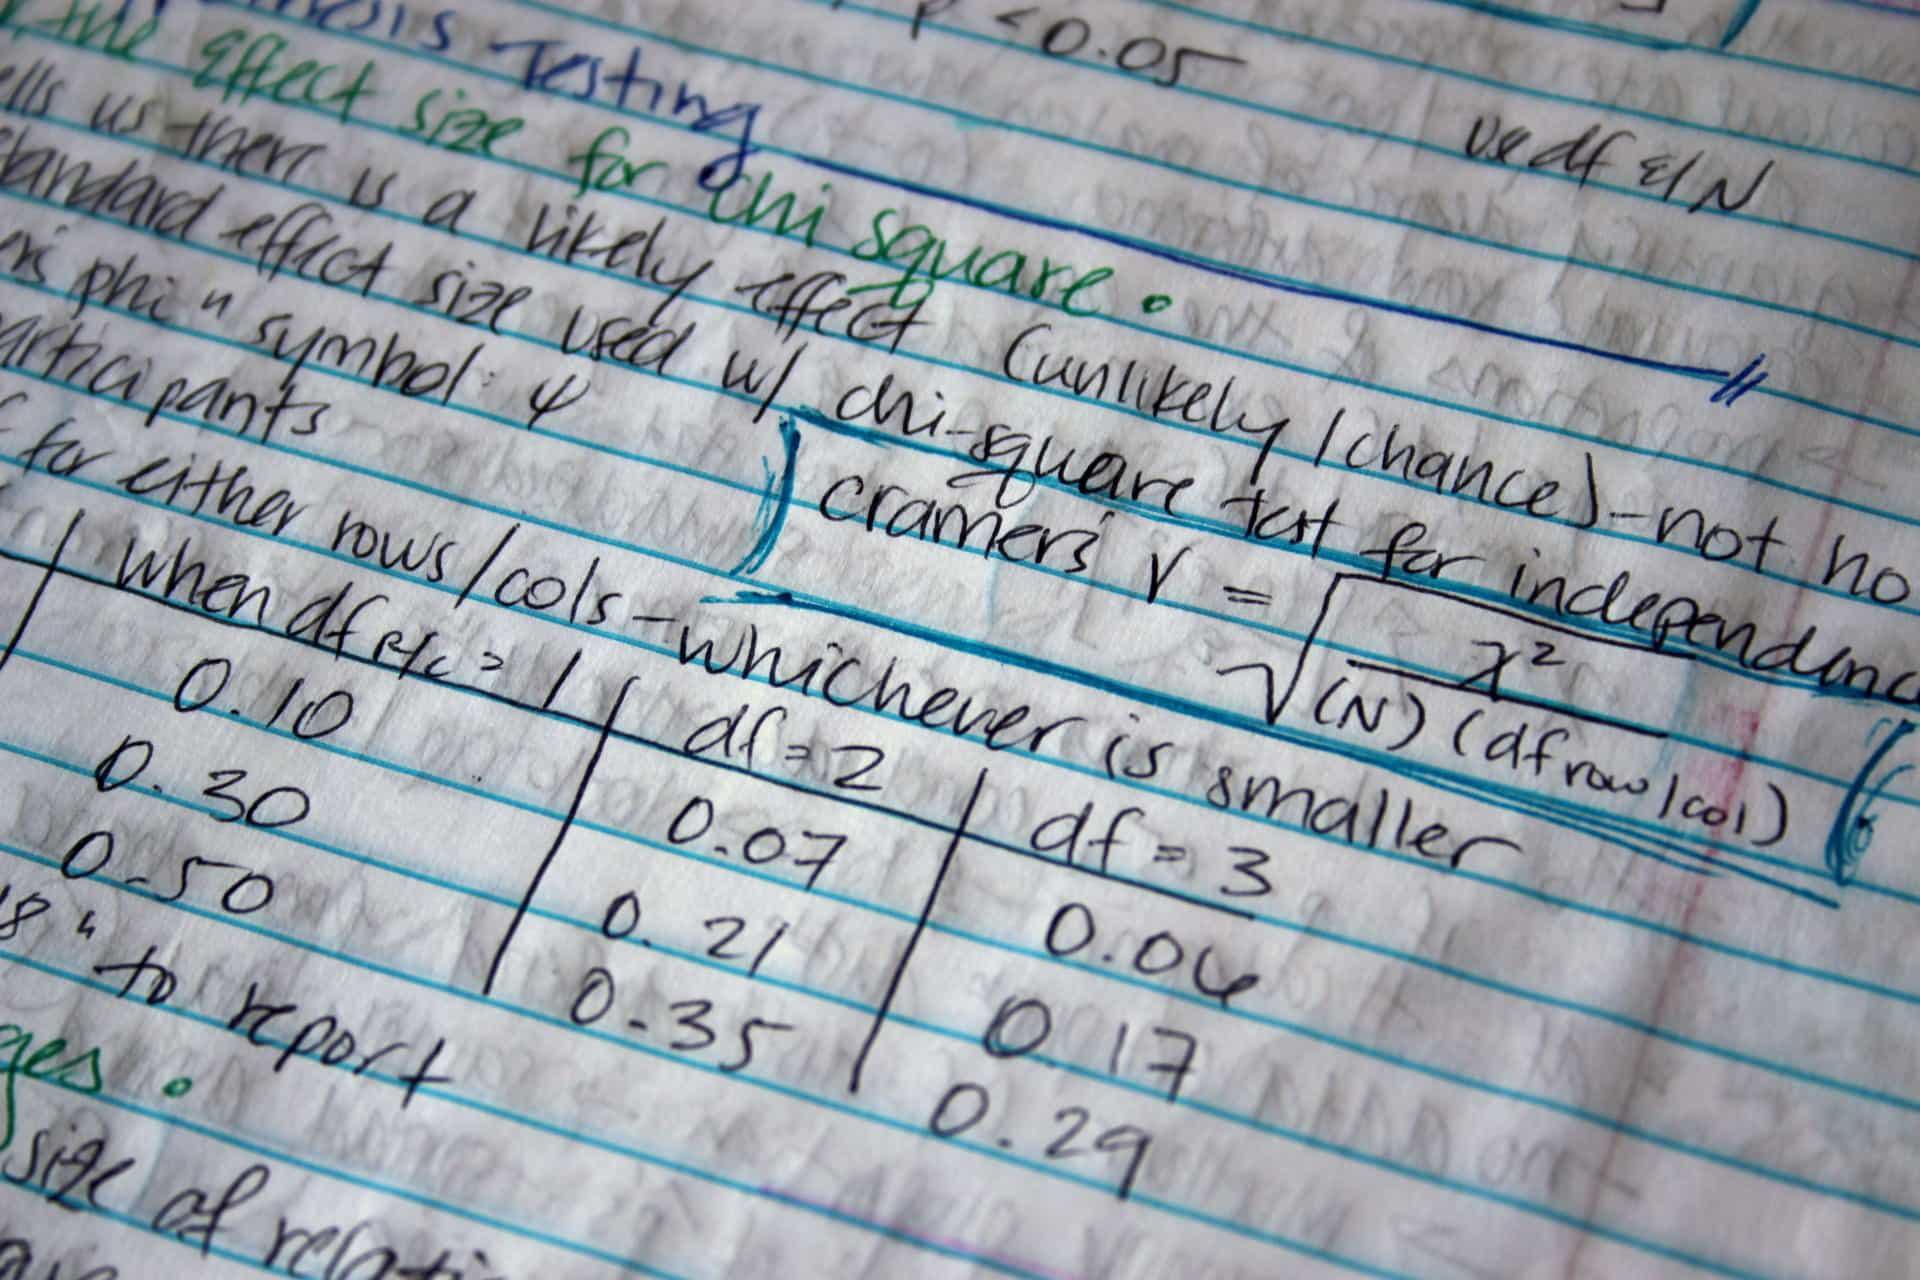 p < 0.05
use df & N
Testing
the effect size for chi square.
us there is a likely effect (unlikely/chance) - not no
standard effect size used w/ chi-square test for independence
phi" symbol: φ
participants
cramer's V = √ χ² / (N) (df row/col)
for either rows/cols - whichever is smaller
when df R/C = 1 df = 2 df = 3
0.10 0.07 0.06
0.30 0.21 0.17
0.50 0.35 0.29
" to report
size of